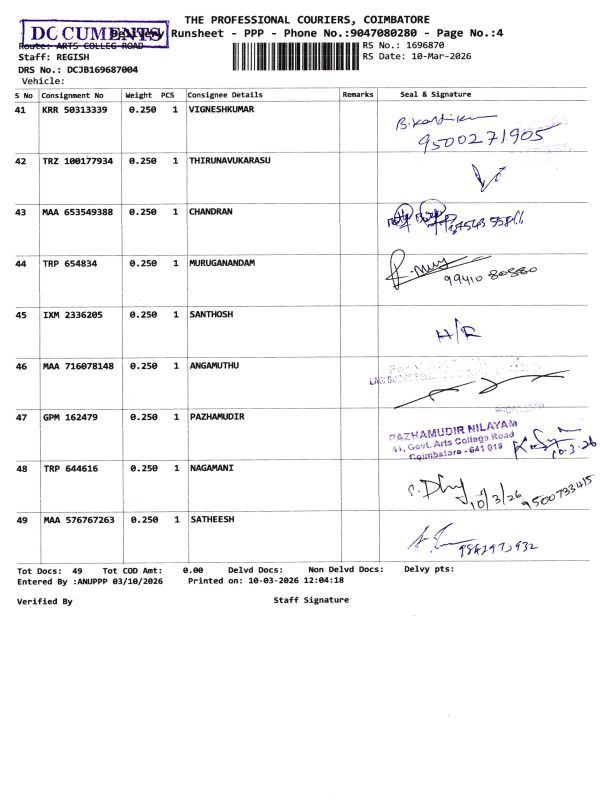 THE PROFESSIONAL COURIERS, COIMBATORE
DOCUMENTS
Delivery Runsheet - PPP - Phone No.:9047080280 - Page No.:4
Route: ARTS COLLEG ROAD
RS No.: 1696870
Staff: REGISH
RS Date: 10-Mar-2026
DRS No.: DCJB169687004
Vehicle:
S No Consignment No Weight PCS Consignee Details Remarks Seal & Signature
41 KRR 50313339 0.250 1 VIGNESHKUMAR
9500271905
42 TRZ 100177934 0.250 1 THIRUNAVUKARASU
43 MAA 653549388 0.250 1 CHANDRAN
44 TRP 654834 0.250 1 MURUGANANDAM
99410 80580
45 IXM 2336205 0.250 1 SANTHOSH
H/R
46 MAA 716078148 0.250 1 ANGAMUTHU
47 GPM 162479 0.250 1 PAZHAMUDIR
PAZHAMUDIR NILAYAM
41, Govt. Arts College Road
Coimbatore - 641 018
10.3.26
48 TRP 644616 0.250 1 NAGAMANI
10/3/26 9500733415
49 MAA 576767263 0.250 1 SATHEESH
Tot Docs: 49 Tot COD Amt: 0.00 Delvd Docs: Non Delvd Docs: Delvy pts:
Entered By :ANUPPP 03/10/2026 Printed on: 10-03-2026 12:04:18
Verified By Staff Signature